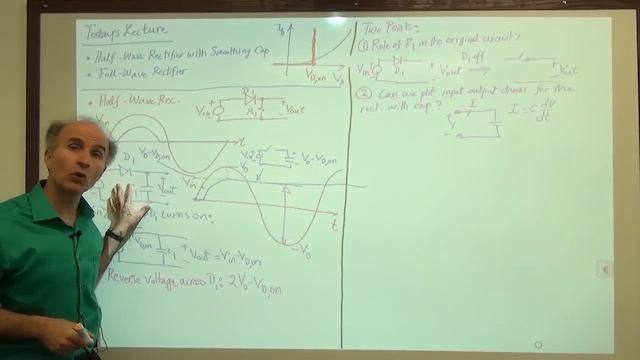 Today's Lecture
• Half-Wave Rectifier with Smoothing Cap
• Full-Wave Rectifier
I_D
V_D,on
V_D
• Half-Wave Rec.
V_in
D_1
R_1
V_out
V_in
t
V_0-V_D,on
D_1
V_out
V_in
V_0
V_0-V_D,on
t
-V_0
D_1 turns on:
V_D,on
C_1
V_out = V_in - V_D,on
Reverse Voltage across D_1: 2V_0 - V_D,on
Two Points:
① Role of R_1 in the original circuit?
V_in
D_1
V_out
D_1 off
V_out
② Can we plot input output charac. for the
rect. with cap?
I
V
I = C dV/dt